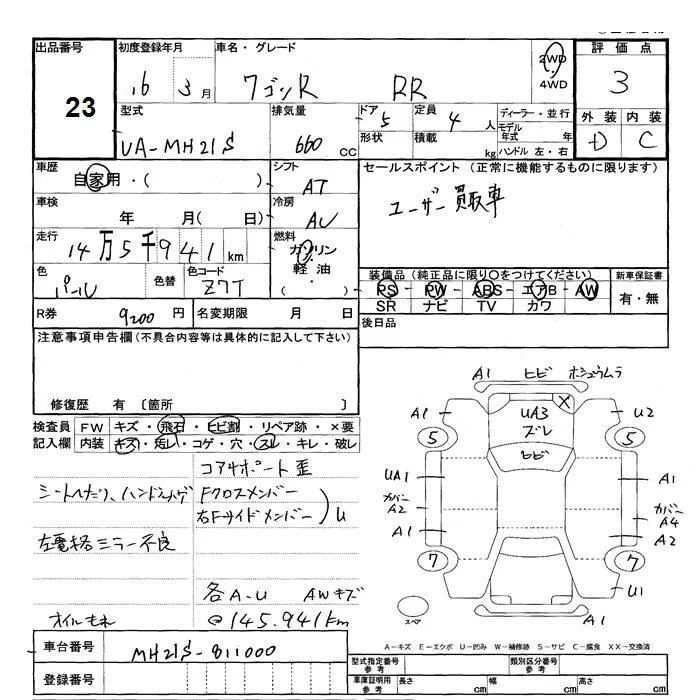 出品番号 初度登録年月 車名・グレード 評価点
23 16 3月 ワゴンR RR 2WD 4WD 3
型式 排気量 ドア 5 定員 4人 ディーラー・並行 外装 内装
UA-MH21S 660cc 形状 積載 kg モデル年式 年 ハンドル 左・右 D C
車歴 自家用・( ) シフト AT セールスポイント (正常に機能するものに限ります)
車検 年 月( 日) 冷房 AC ユーザー買取車
走行 14万5千941km 燃料 ガソリン・軽油・( )
色 パール 色替 色コード Z7T 装備品(純正品に限り○をつけてください) 新車保証書
PS・PW・ABS・エアB・AW 有・無
SR ナビ TV カワ
R券 9200円 名変期限 月 日 後日品
注意事項申告欄(不具合内容等は具体的に記入して下さい)
修復歴 有 〔箇所 〕
検査員記入欄 FW キズ・飛石・ヒビ割・リペア跡・×要
内装 キズ・汚レ・コゲ・穴・スレ・キレ・破レ
コアサポート歪
シートヘたり、ハンドル Fクロスメンバー
右Fサイドメンバー U
左電格ミラー不良
各A.U AWキズ
オイルもれ @145.941km
A1 ヒビ
A1 UA3 U2
ズレ
5 ヒビ 5
UA1 A1
カバー A2 カバー A4
A1 A2
7 7
U1
スペア A1
A-キズ E-エクボ U-凹み W-補修跡 S-サビ C-腐食 XX-交換済
車台番号 MH21S-811000
登録番号
型式指定番号 参考 類別区分番号 参考
車庫証明用 参考 長さ cm 幅 cm 高さ cm